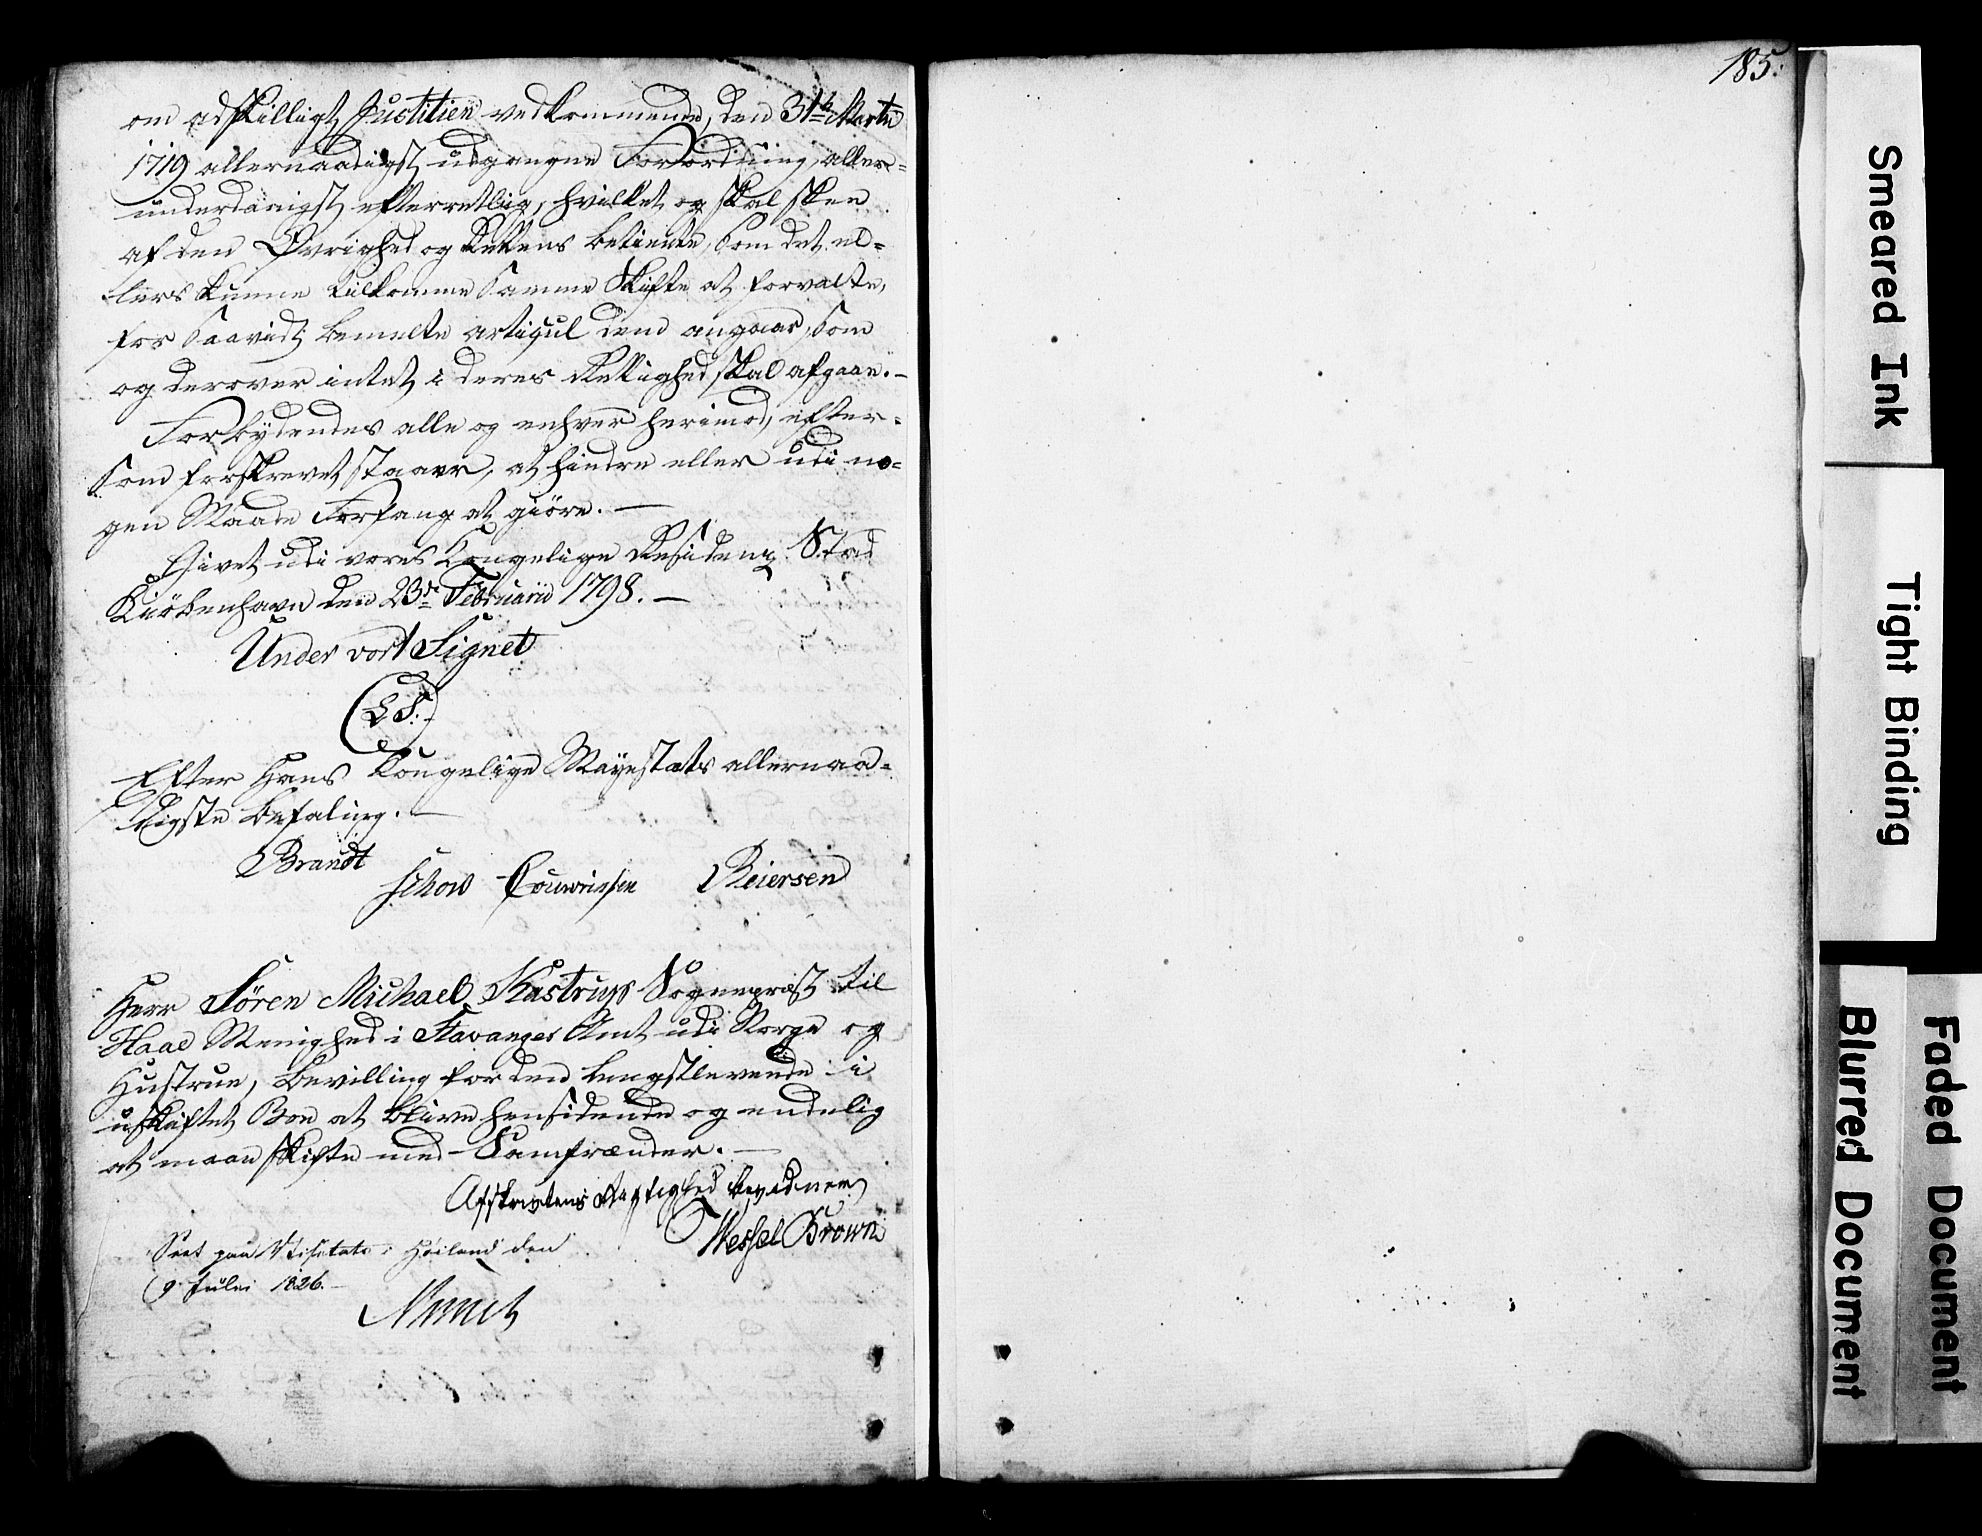 om adskilligt Justitien vedkommende, den 31te Martii
1719 allernaadigst udgangne Forordning, aller=
underdanigst efterretlig, hvilket og skal skee
af den Øvrighed og Rettens betiente, som det el=
lers kunne tilkomme samme Skifte at forvalte,
for saavidt bemelte articul dem angaar, som
og derover intet i deres Rettighed skal afgaae. –
Forbydendes alle og enhver herimod, efter=
som forskrevet staaer, at hindre eller udi no=
gen Maade Forfang at giöre. –
Givet udi vores Kongelige Residentz Stad
Kiöbenhavn den 23de Februarii 1798. –
Under vort Signet
(L S:)
Efter Hans Kongelige Mayestæts allernaa=
digste Befaling. –
Brandt
Schow Reiersen
Herr Sören Michael Kastrup Sognepræst til
Haae Menighed i Stavanger Amt udi Norge og
Hustrue, Bevilling for den længstlevende i
uskiftet Boe at blive hensidende og endelig
at maae skifte med Samfrænder. –
Afskriftens Rigtighed bevidner
Wessel Brown
Seet paa Visitats i Höiland den
9 Julii 1826. –
185.
Smeared Ink
Tight Binding
Blurred Document
Faded Document